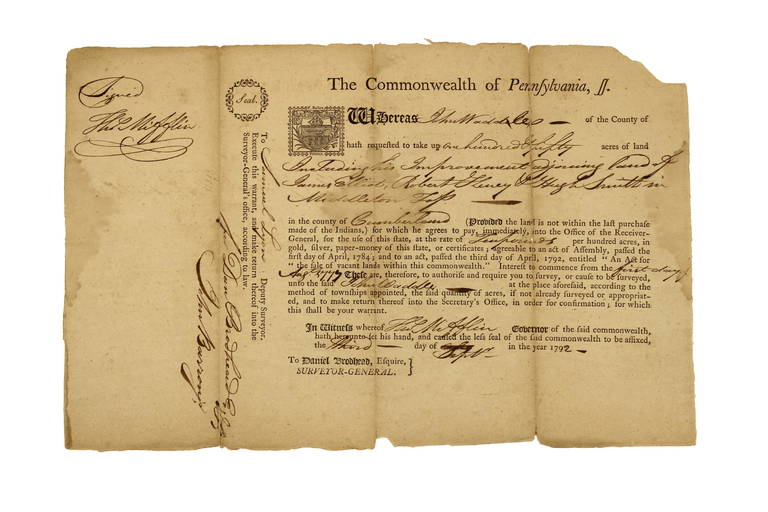 Signed
Thos. Mifflin
Seal.
The Commonwealth of Pennsylvania, ss.
Whereas John Waddle of the County of
hath requested to take up one hundred & fifty acres of land
Including his Improvement adjoining land of
James Robert & Hugh Smith in
Middleton Tp
in the county of Cumberland (Provided the land is not within the last purchase
made of the Indians,) for which he agrees to pay, immediately, into the Office of the Receiver-
General, for the use of this state, at the rate of Ten pounds per hundred acres, in
gold, silver, paper-money of this state, or certificates; agreeable to an act of Assembly, passed the
first day of April, 1784; and to an act, passed the third day of April, 1792, entitled “An Act for
“the sale of vacant lands within this commonwealth.” Interest to commence from the first day of
These are, therefore, to authorise and require you to survey, or cause to be surveyed,
unto the said John Waddle at the place aforesaid, according to the
method of townships appointed, the said quantity of acres, if not already surveyed or appropriat-
ed, and to make return thereof into the Secretary's Office, in order for confirmation; for which
this shall be your warrant.
In Witness whereof Thos. Mifflin Governor of the said commonwealth,
hath hereunto set his hand, and caused the less seal of the said commonwealth to be affixed,
the third day of Septr. in the year 1792
To Daniel Brodhead, Esquire,
SURVEYOR-GENERAL.
To Samuel Lyon Deputy Surveyor.
Execute this warrant, and make return thereof into the
Surveyor-General's office, according to law.
for Danl. Brodhead Esq.
John Barron